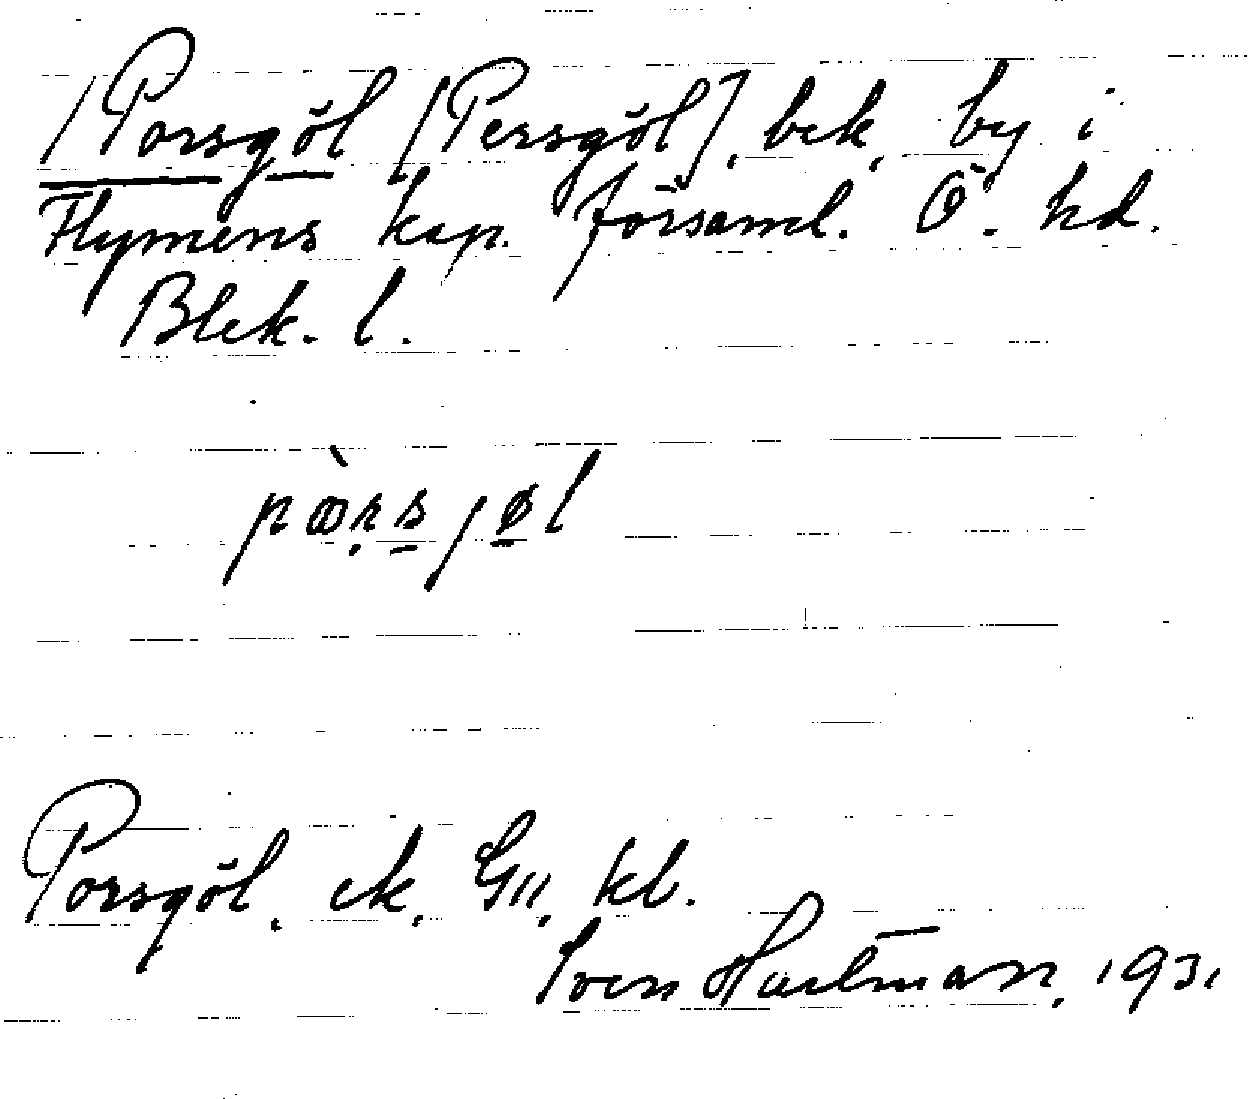 /Porsgöl [Persgöl], bek, by i
Flymens kap. församl. Ö. hd.
Blek. l.
Porsgöl, ek, G11, kl.
Sven Hartman, 1931